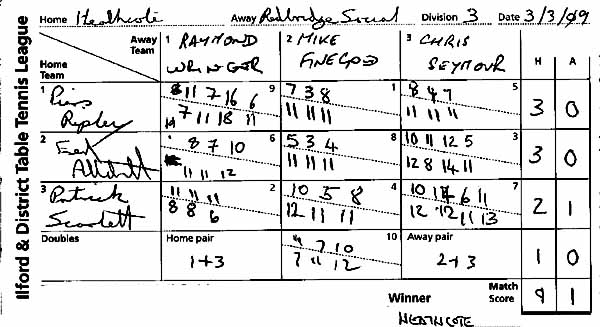 Ilford & District Table Tennis League
Home Heathcote Away Redbridge Social Division 3 Date 3/3/09
Away Team 1 RAYMOND 2 MIKE 3 CHRIS SEYMOUR H A
Home Team
1 Piers Ripley 9 11 7 16 6 1 7 3 8 5 8 4 7 3 0
7 11 18 11 11 11 11 11 11 11
2 6 8 7 10 8 5 3 4 3 10 11 12 5 3 0
11 11 12 11 11 11 12 8 14 11
3 Patrick Scarlett 2 11 11 11 4 10 5 8 7 10 6 11 2 1
8 8 6 12 11 11 12 12 11 13
Doubles Home pair 1+3 10 7 10 Away pair 2+3 1 0
11 12
Winner HEATHCOTE Match Score 9 1